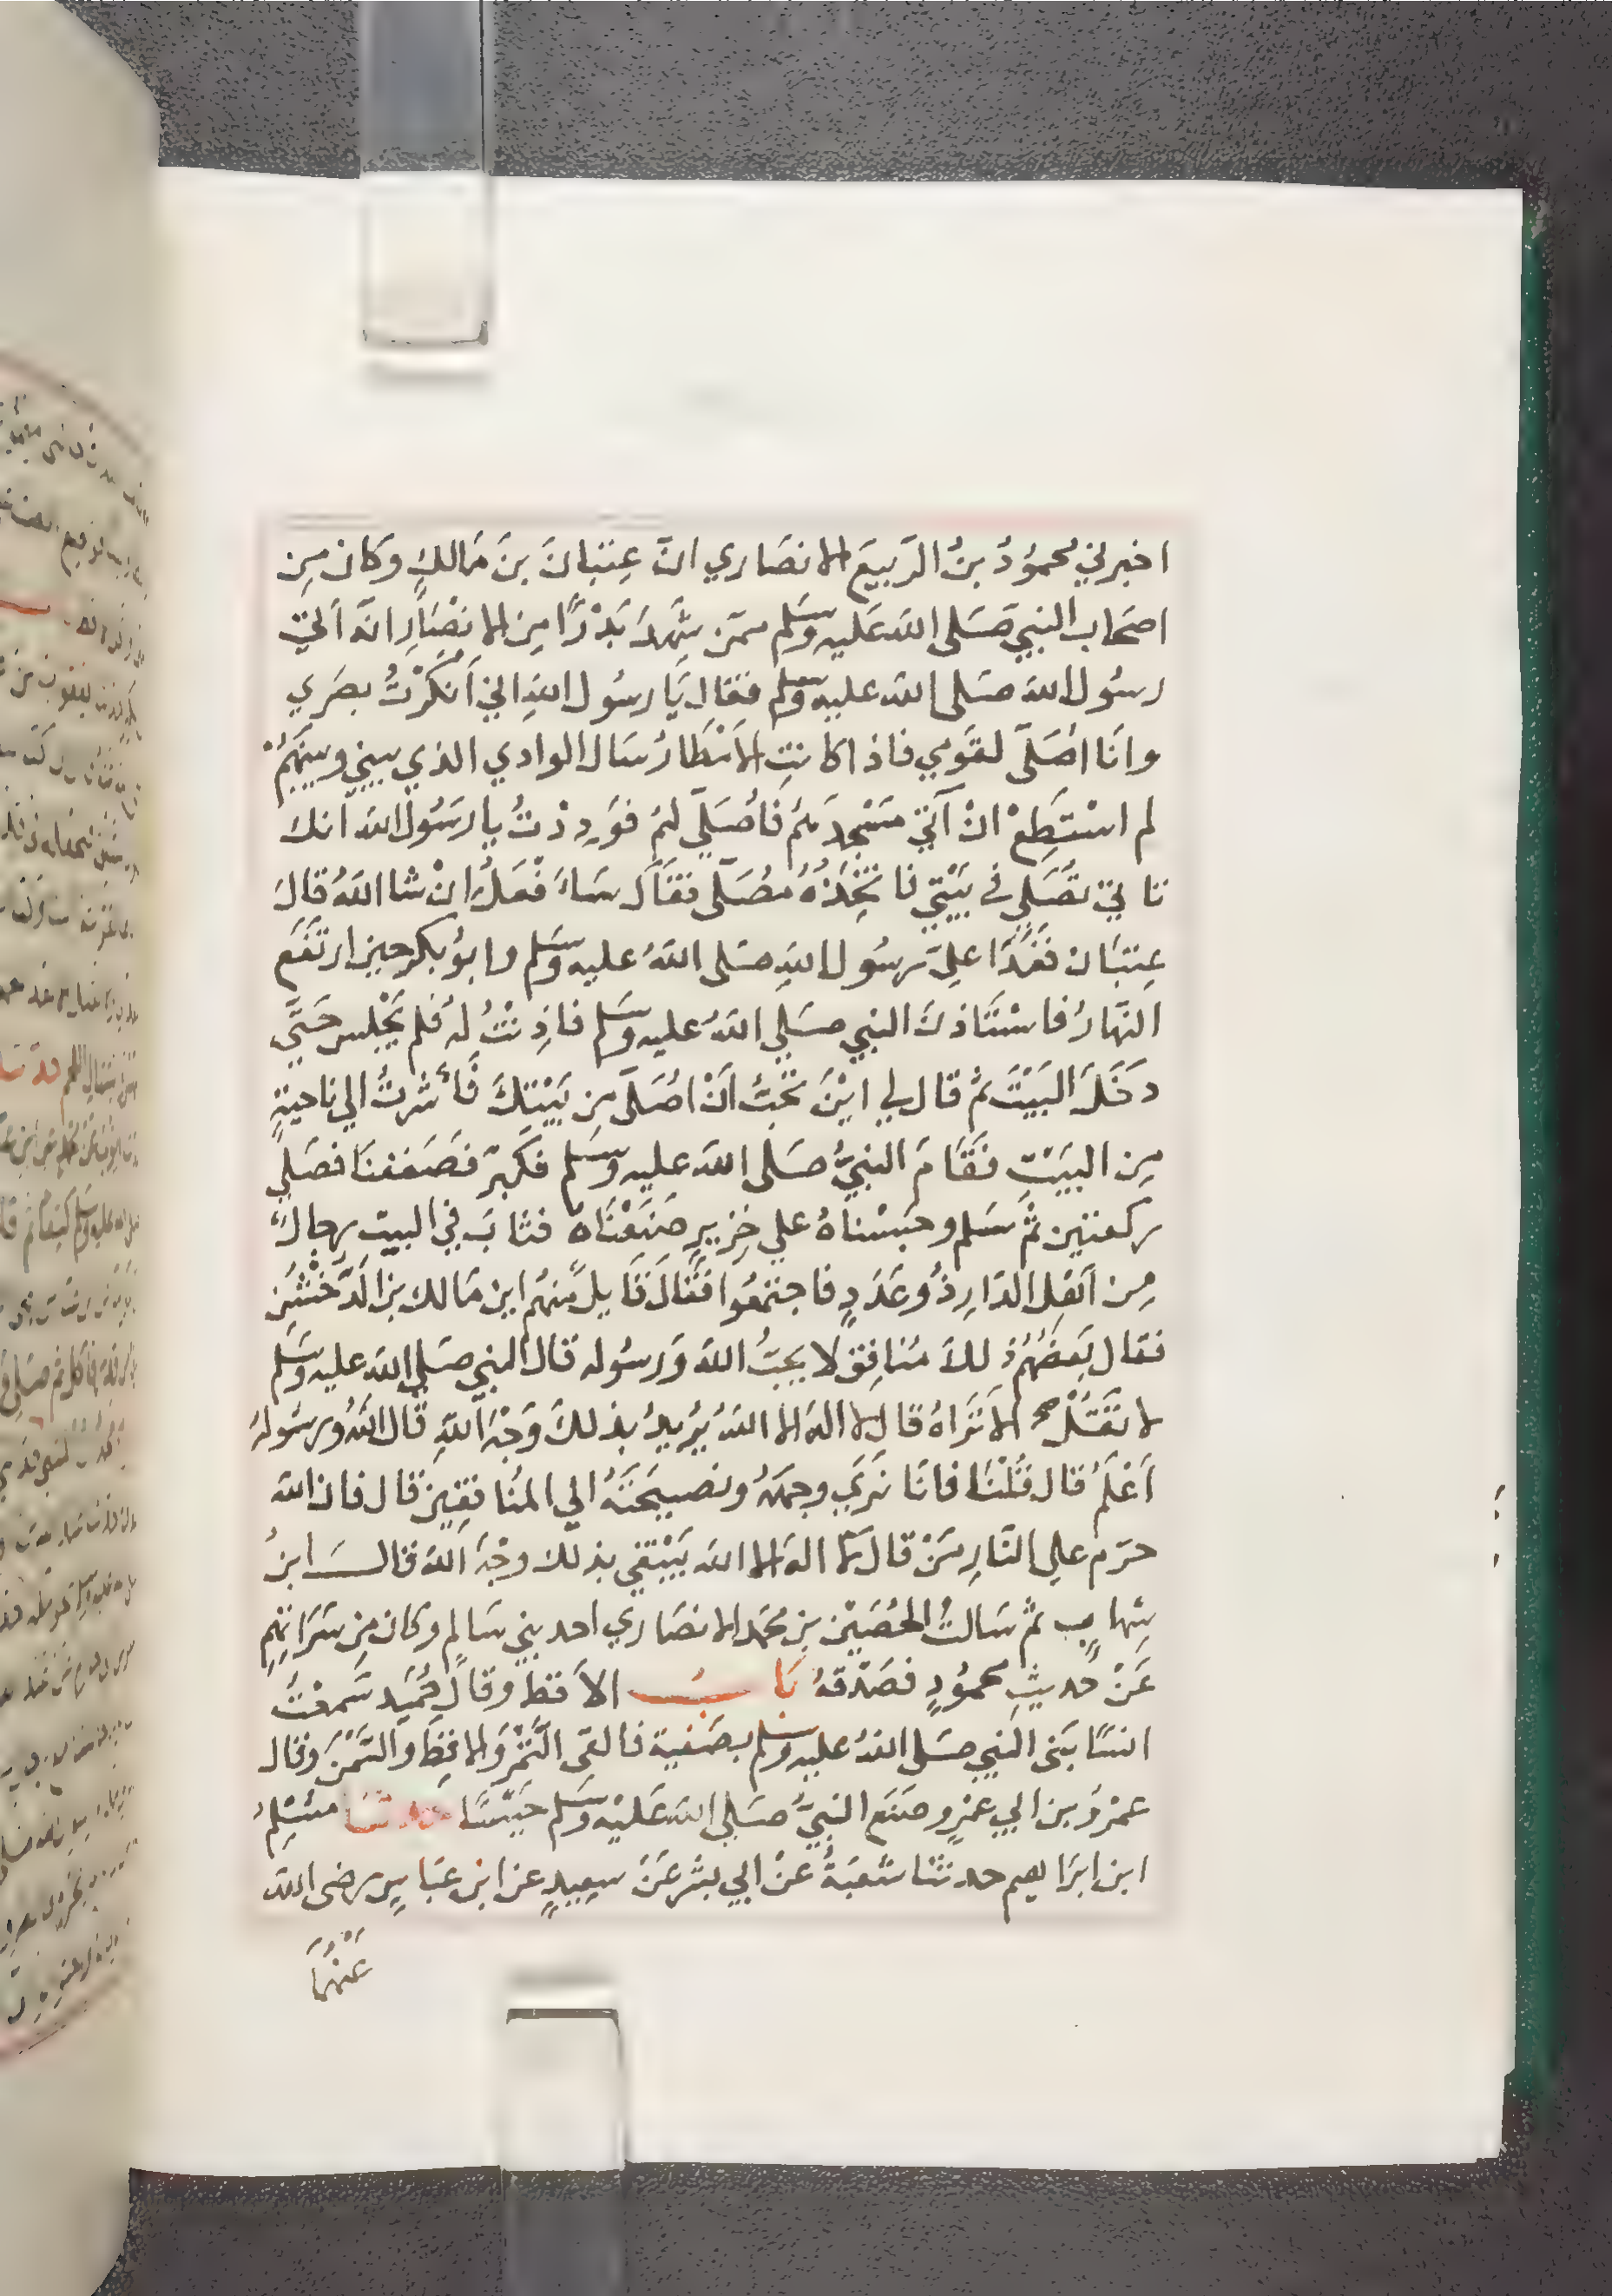 اخبرني محمُوُدُ بنُ الرَّبيعَ الانصَاري انَّ عِتبَانَ بنَ مَالكٍ وكَان مِن
اصحَاب النبي صَلى الله عَليه وسَلم ممَّن شِهَدَ بَدْرًا مِن الانصَارِ انَّه اَتيَ
رسُول الله صلى الله عليه وسلم فقال يَا رسُول اللهِ اني اَنكَرْتُ بصَري
وانَا اصَلّى لقَومي فاذا كانتِ الامْطَارُ سَال الوادي الذي بيني وبينَهُمْ
لم اسْتَطِعْ انْ آتيَ مَسْجدَهُمْ فَاُصَلّي لهُم فوَدِدْتُ يا رَسُول الله انكَ
تاتي تصَلي في بَيْتي فاتخِذَهُ مصَلّى فقَالَ سَاَفْعَلُ انْ شا اللهُ قالَ
عِتبَان فَغَدَا عليَّ رسُول اللهِ صَلى اللهُ عليه وسَلم وابوُ بكر حين ارتفَع
النَّهارُ فاسْتَاذنَ النبي صَلي اللهُ عليه وسَلم فاذِنْتُ لهُ فلم يَجْلس حَتَّي
دخَلَ البَيْتَ ثمَّ قال لي ايْنَ تحِبُّ اَنْ اصَلّىَ مِن بَيْتِكَ فَأشرتُ الي ناحيَةٍ
مِن البيَتِ فقَامَ النبيُّ صَلى الله عليه وسَلم فكبرَّ فصَففنَا فصَلي
ركعتين ثمَّ سَلم وحبَسْناهُ علي خزِيرٍ صَنَعْنَاهُ فثابَ في البيتِ رجالٌ
مِن اَهْلِ الدَّارِ ذُو عَدَدٍ فاجتمعُوا فقَالَ قَايلٌ منهُم اين مَالك بن الدُّخْشُنِ
فقال بَعضُهُم ذلكَ مُنافِقٌ لا يحِبُّ اللهَ وَرسُوله قال النبي صَلي الله عليه وسَلم
لا تقَتُلْ الا تَرَاهُ قال لا اله الا الله يُريدُ بذلكَ وَجْهَ اللهِ قال اللهُ ورسُولهُ
اَعْلَمُ قال قُلْنَا فانَا نَرَي وجهَهُ ونصيحَتَهُ الي المنُافقِين قال فان الله
حرَّم علي النَّارِ مَنْ قال لا اله الا الله يَبْتغي بذلك وجْهَ الله قال ابنُ
شِهابٍ ثمَّ سَالتُ الحُصَيْن بن محَمد الانصَاري احد بني سَالمٍ وكان مِن سَرَاتهِمِ
عَنْ حَديثِ محموُدٍ فصَدّقهُ بَابُ الاَقط وقال حُمَيْد سَمعْتُ
انسًا بَنى النبي صَلى اللهُ عليه وسَلم بصَفية فالقى التَّمْرَ والاقِطَ والسَّمْنَ وقال
عمرْوُ بن ابي عمْرٍو صنَع النبيُّ صَلي الله عَليْه وسَلم حَيْسًا حَدثنا مسْلِمُ
ابن ابرَاهيم حدثنا شعْبَةُ عَنْ ابي بشرٍ عَنْ سعِيدٍ عن ابن عبَاسٍ رضي الله
عَنْهُمَا